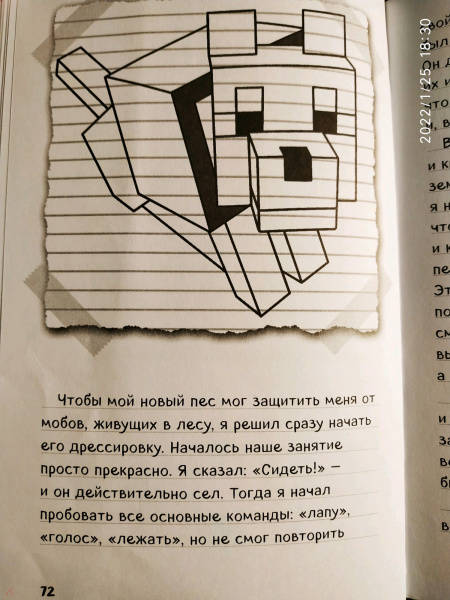 2022/1/25 18:30
Чтобы мой новый пес мог защитить меня от
мобов, живущих в лесу, я решил сразу начать
его дрессировку. Началось наше занятие
просто прекрасно. Я сказал: «Сидеть!» —
и он действительно сел. Тогда я начал
пробовать все основные команды: «лапу»,
«голос», «лежать», но не смог повторить
72